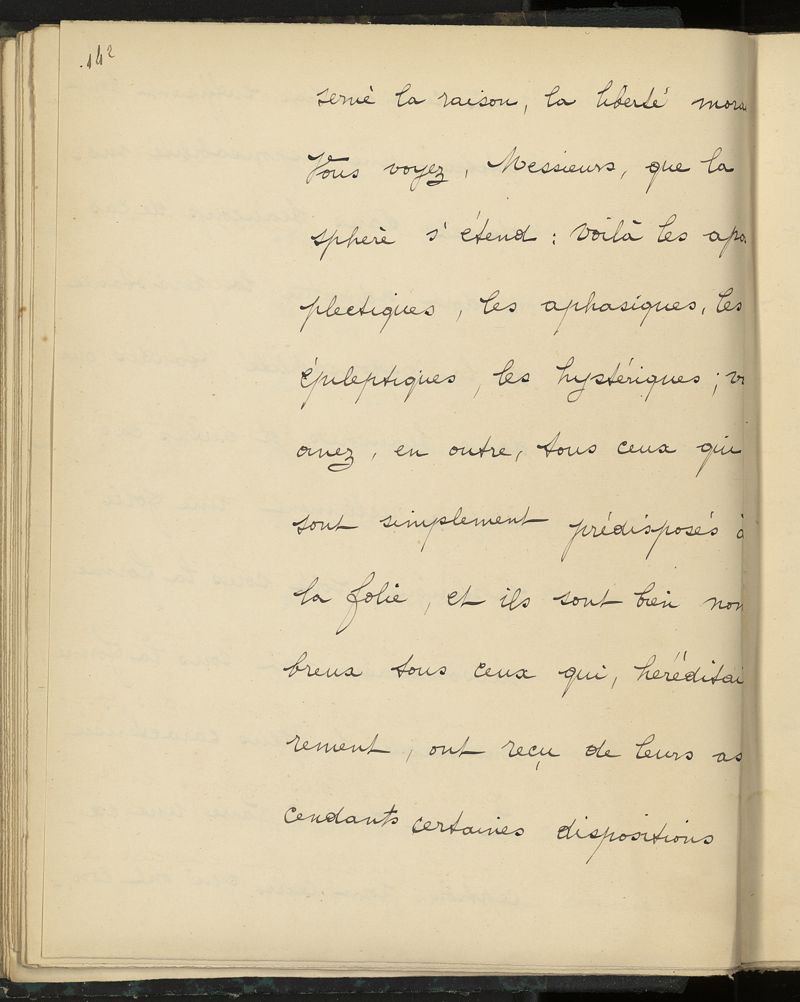 142
servé la raison, la liberté mora
Vous voyez, Messieurs, que la
sphère s'étend : voilà les apo
plectiques, les aphasiques, les
épileptiques, les hystériques ;
enez, en outre, tous ceux qui
sont simplement prédisposés à
la folie, et ils sont bien nom
breux tous ceux qui, héréditai
rement, ont reçu de leurs as
cendants certaines dispositions